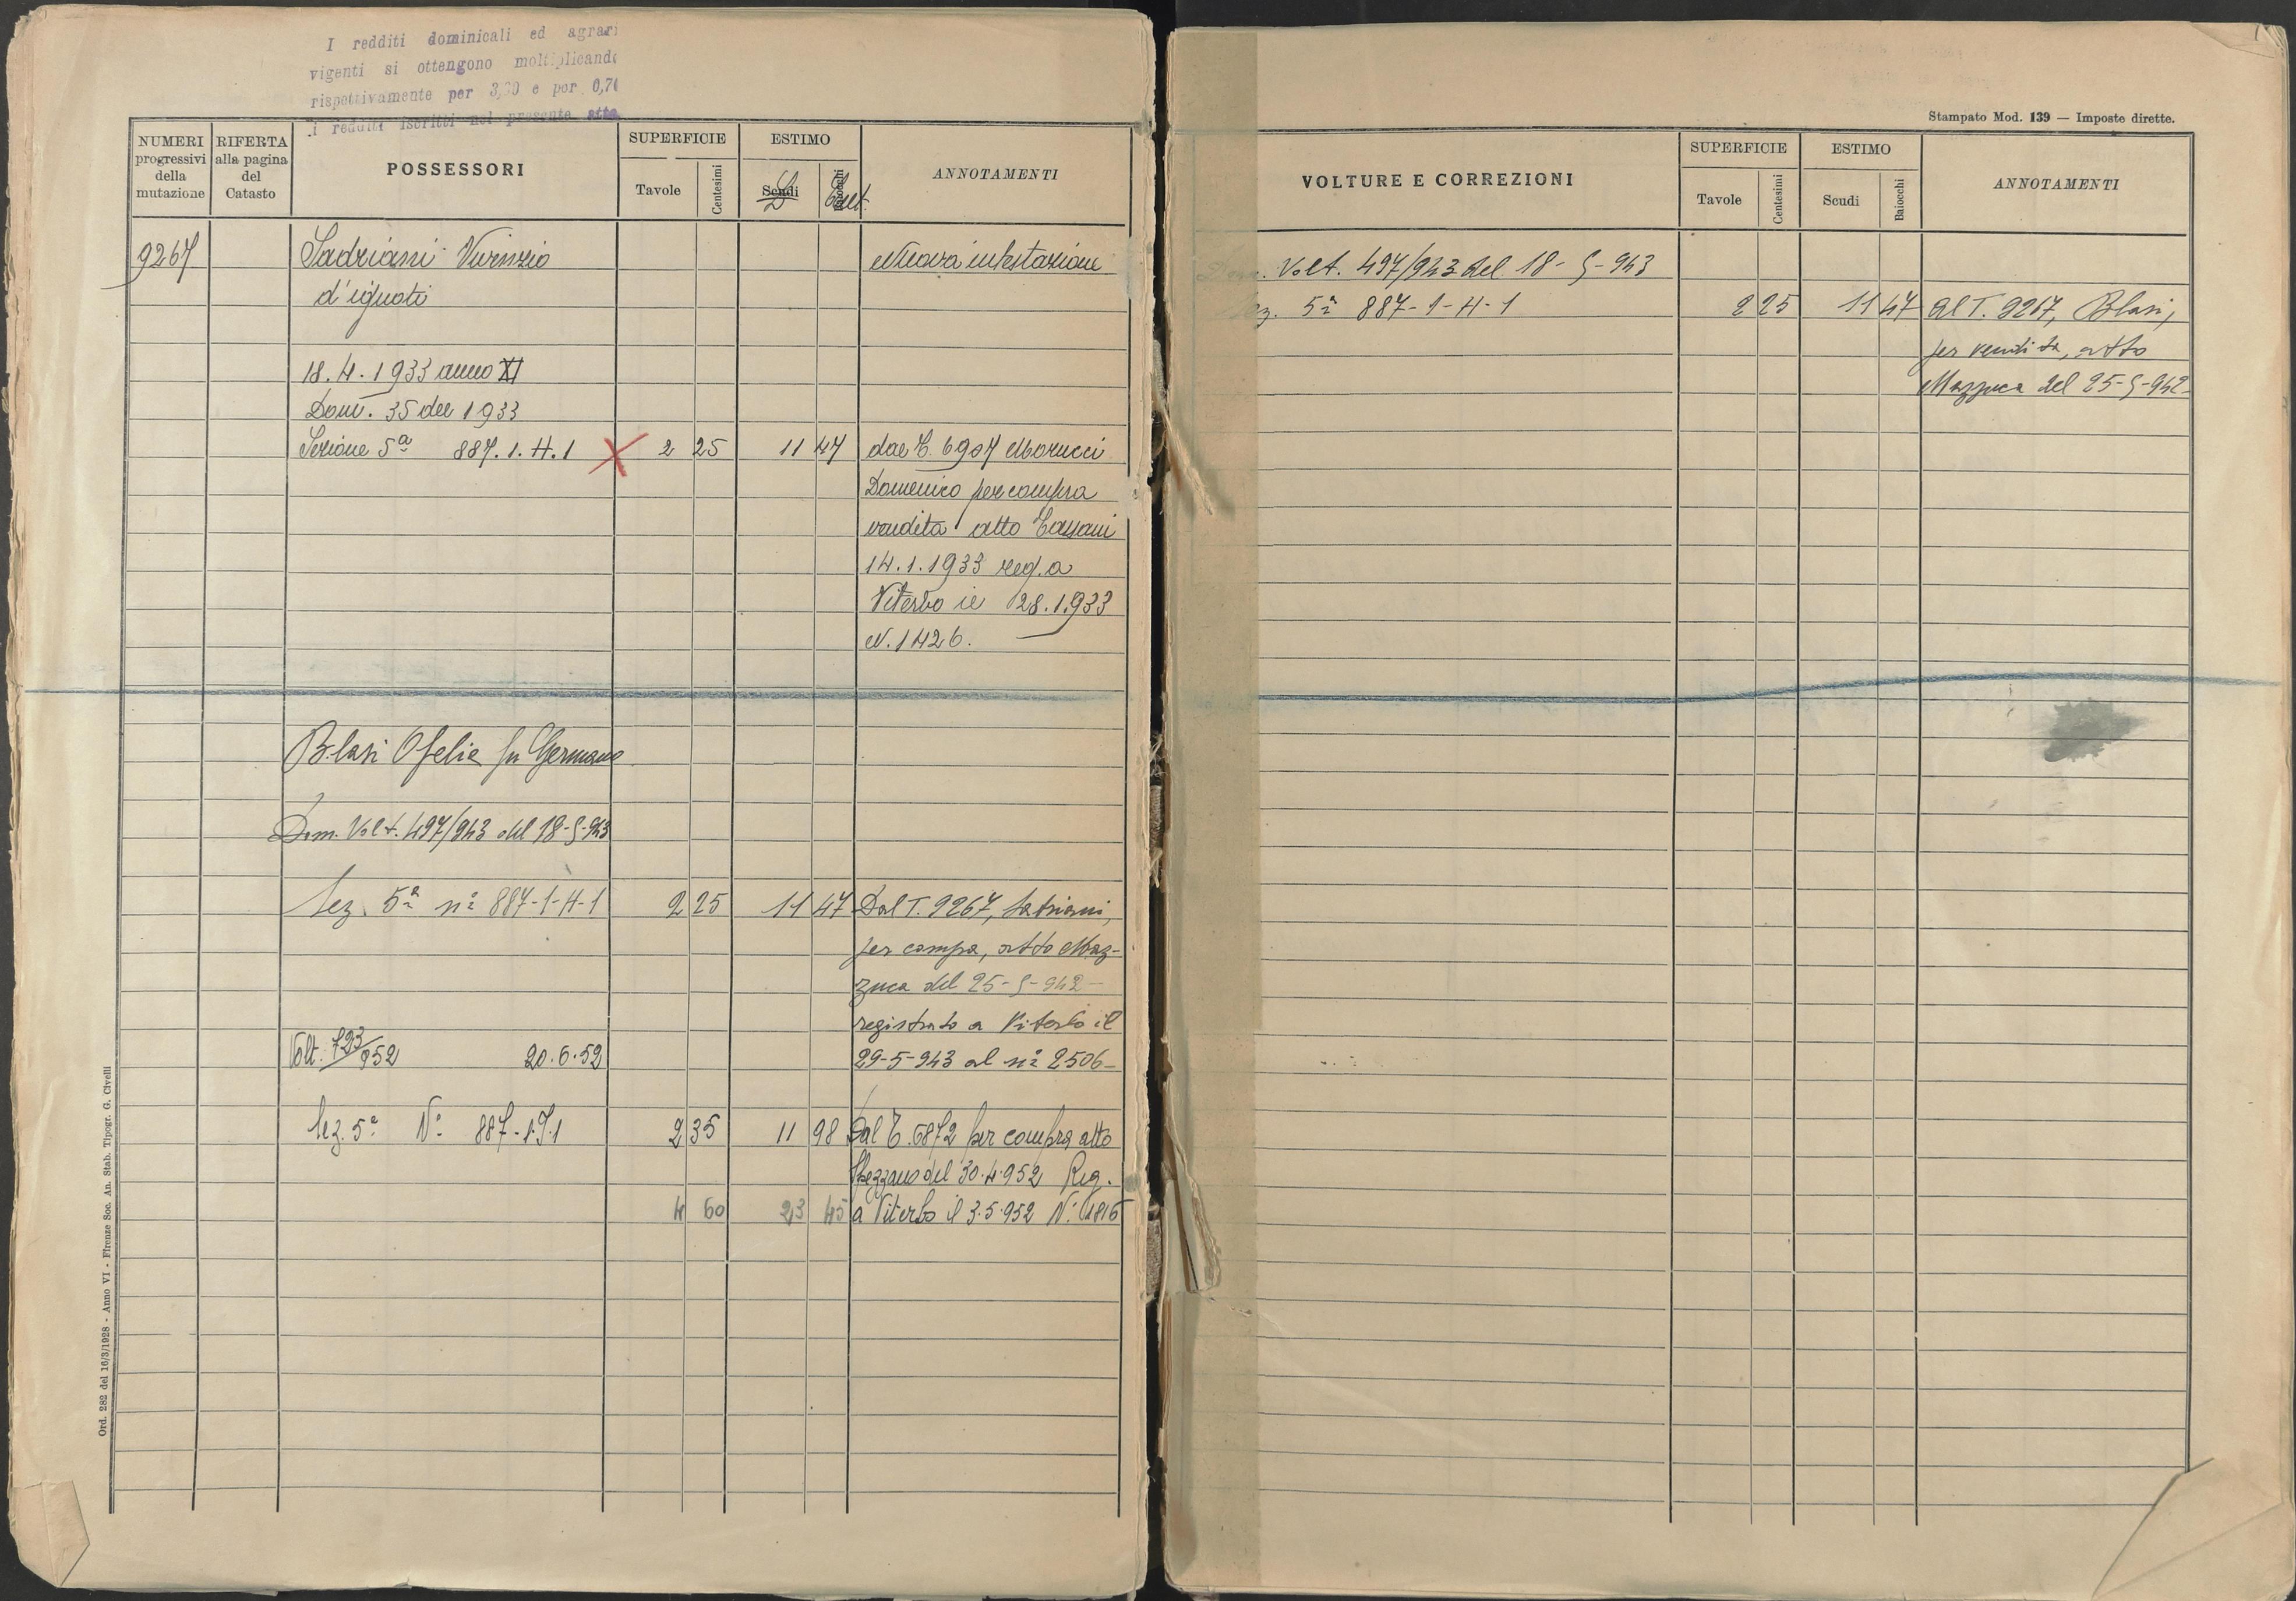 I redditi dominicali ed agrari
vigenti si ottengono moltiplicando
rispettivamente per 3,20 e per 0,70
i redditi iscritti nel presente atto
NUMERI progressivi della mutazione
RIFERTA alla pagina del Catasto
POSSESSORI
SUPERFICIE
Tavole
Centesimi
ESTIMO
Scudi
Baiocchi
L
Cent.
ANNOTAMENTI
9267
Sadriani Vicenzio
Nuova intestazione
d'ignoti
18.4.1933 anno XI
Dom. 35 del 1933
Sezione 5a 887.1.H.1 X 2 25 11 47 dal T. 6907 Morucci
Domenico per compra
vendita atto Tassani
14.1.1933 reg. a
Viterbo il 28.1.933
N. 1426.
Blasi Ofelia fu Germano
Dom. Volt. 497/943 del 18-5-943
Sez. 5a n° 887-1-H-1 2 25 11 47 Dal T. 9267, Satriani,
per compa, atto Maz-
zuca del 25-5-942-
registrato a Viterbo il
29-5-943 al n° 2506-
Volt. 723/952 20.6.52
Sez. 5a N° 887-1.I.1 2 35 11 98 Dal T. 6872 per compra atto
Spezzano del 30.4.952 Reg.
4 60 23 45 a Viterbo il 3.5.952 N° 1816
Ord. 282 del 16/3/1928 - Anno VI - Firenze Soc. An. Stab. Tipogr. G. Civelli
Stampato Mod. 139 — Imposte dirette.
VOLTURE E CORREZIONI
SUPERFICIE
Tavole
Centesimi
ESTIMO
Scudi
Baiocchi
ANNOTAMENTI
Dom. Volt. 497/943 del 18-5-943
Sez. 5a 887-1-H-1 2 25 11 47 Al T. 9267, Blasi,
per vendita, atto
Mazzuca del 25-5-942-